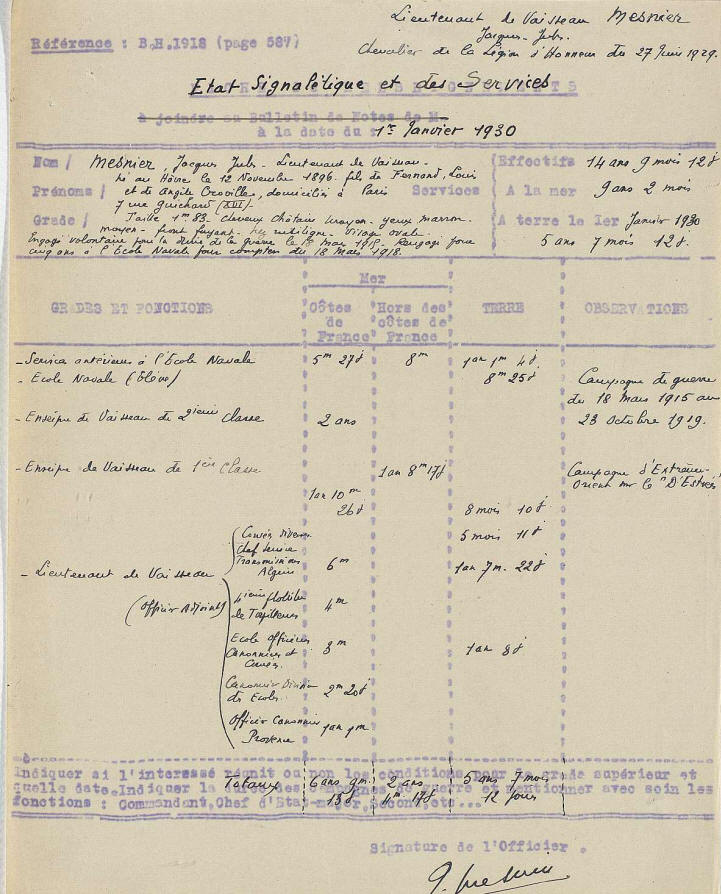 Lieutenant de Vaisseau Mesnier
Jacques - Jules.
Chevalier de la Légion d'Honneur du 27 Juin 1929.
Référence : B.H.1918 (page 587)
Etat Signalétique et des Services
à joindre au Bulletin de Notes de M
à la date du : 1er Janvier 1930
Nom / Mesnier, Jacques Jules - Lieutenant de Vaisseau -
né au Hâvre le 12 Novembre 1896. fils de Fernand, Louis
Prénoms / et de Angèle domiciliés à Paris
7 rue Guichard (XVI) -
Grade / Taille 1m 83. cheveux châtains yeux marron.
moyen - front fuyant. nez rectiligne - Visage ovale.
Engagé volontaire pour la durée de la guerre le Mars 1915. Rengagé pour
cinq ans à l'Ecole Navale pour compter du 18 Mars 1918.
Services
Effectifs 14 ans 9 mois 12 j
A la mer 9 ans 2 mois
A terre le 1er Janvier 1930
5 ans 7 mois 12 j.
GRADES ET FONCTIONS
Mer
Côtes de France
Hors des côtes de France
TERRE
OBSERVATIONS
- Services antérieurs à l'Ecole Navale 5m 27j 8m 1an 1m 4j
- Ecole Navale (Elève) 8m 25j
Campagne de guerre
du 18 Mars 1915 au
23 Octobre 1919.
- Enseigne de Vaisseau de 2ième Classe 2 ans
- Enseigne de Vaisseau de 1ère Classe 1an 8m 17j
Campagne d'Extrême-
Orient sur le "D'Estrées"
1an 10m
26j 8 mois 10j
- Lieutenant de Vaisseau
Congés Divers 5 mois 11j
Chef Service
Transmissions
Algérie 6m 1an 7m. 22j
(Officier Adjoint) 4ième flotille
de Torpilleurs 4m
Ecole Officiers
Canonniers et
Congés. 3m 1an 8j
Canonnier Division
des Ecoles. 2m 20j
Officier Canonnier
Provence 1an 1m
Indiquer si l'intéressé réunit ou non les conditions pour le grade supérieur et
quelle date. Indiquer la durée des campagnes de guerre et mentionner avec soin les
fonctions : Commandant, Chef d'Etat-major, Second, etc...
Totaux 6 ans 9m. 13j 2 ans 4m 17j 5 ans 7 mois 12 jours
Signature de l'Officier .
J. Mesnier